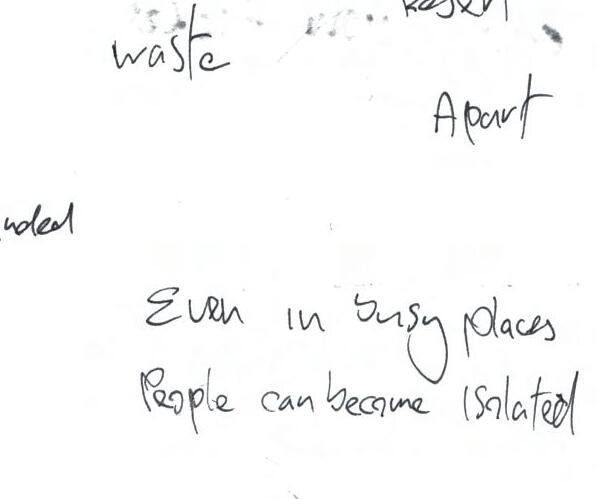 waste
Apart
Even in busy places
People can become isolated